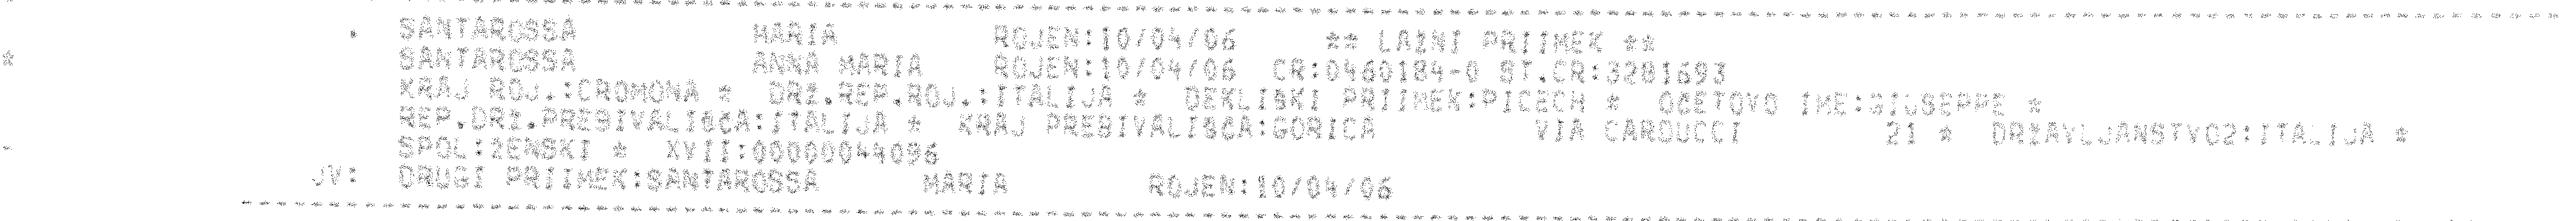 . SANTAROSSA MARIA ROJEN:10/04/06 ** LAZNI PRIIMEK **
* SANTAROSSA ANNA MARIA ROJEN:10/04/06 CR:0460184-0 ST.CR:3281693
KRAJ ROJ.:CROMONA * DRZ.REP.ROJ.:ITALIJA * DEKLISKI PRIIMEK:PICECH * OCETOVO IME:GIUSEPPE *
REP.DRZ.PREBIVALISCA:ITALIJA * KRAJ PREBIVALISCA:GORICA VIA CARDUCCI 21 * DRZAVLJANSTVO2:ITALIJA *
SPOL:ZENSKI * XVII:00000044096
JV: DRUGI PRIIMEK:SANTAROSSA MARIA ROJEN:10/04/06